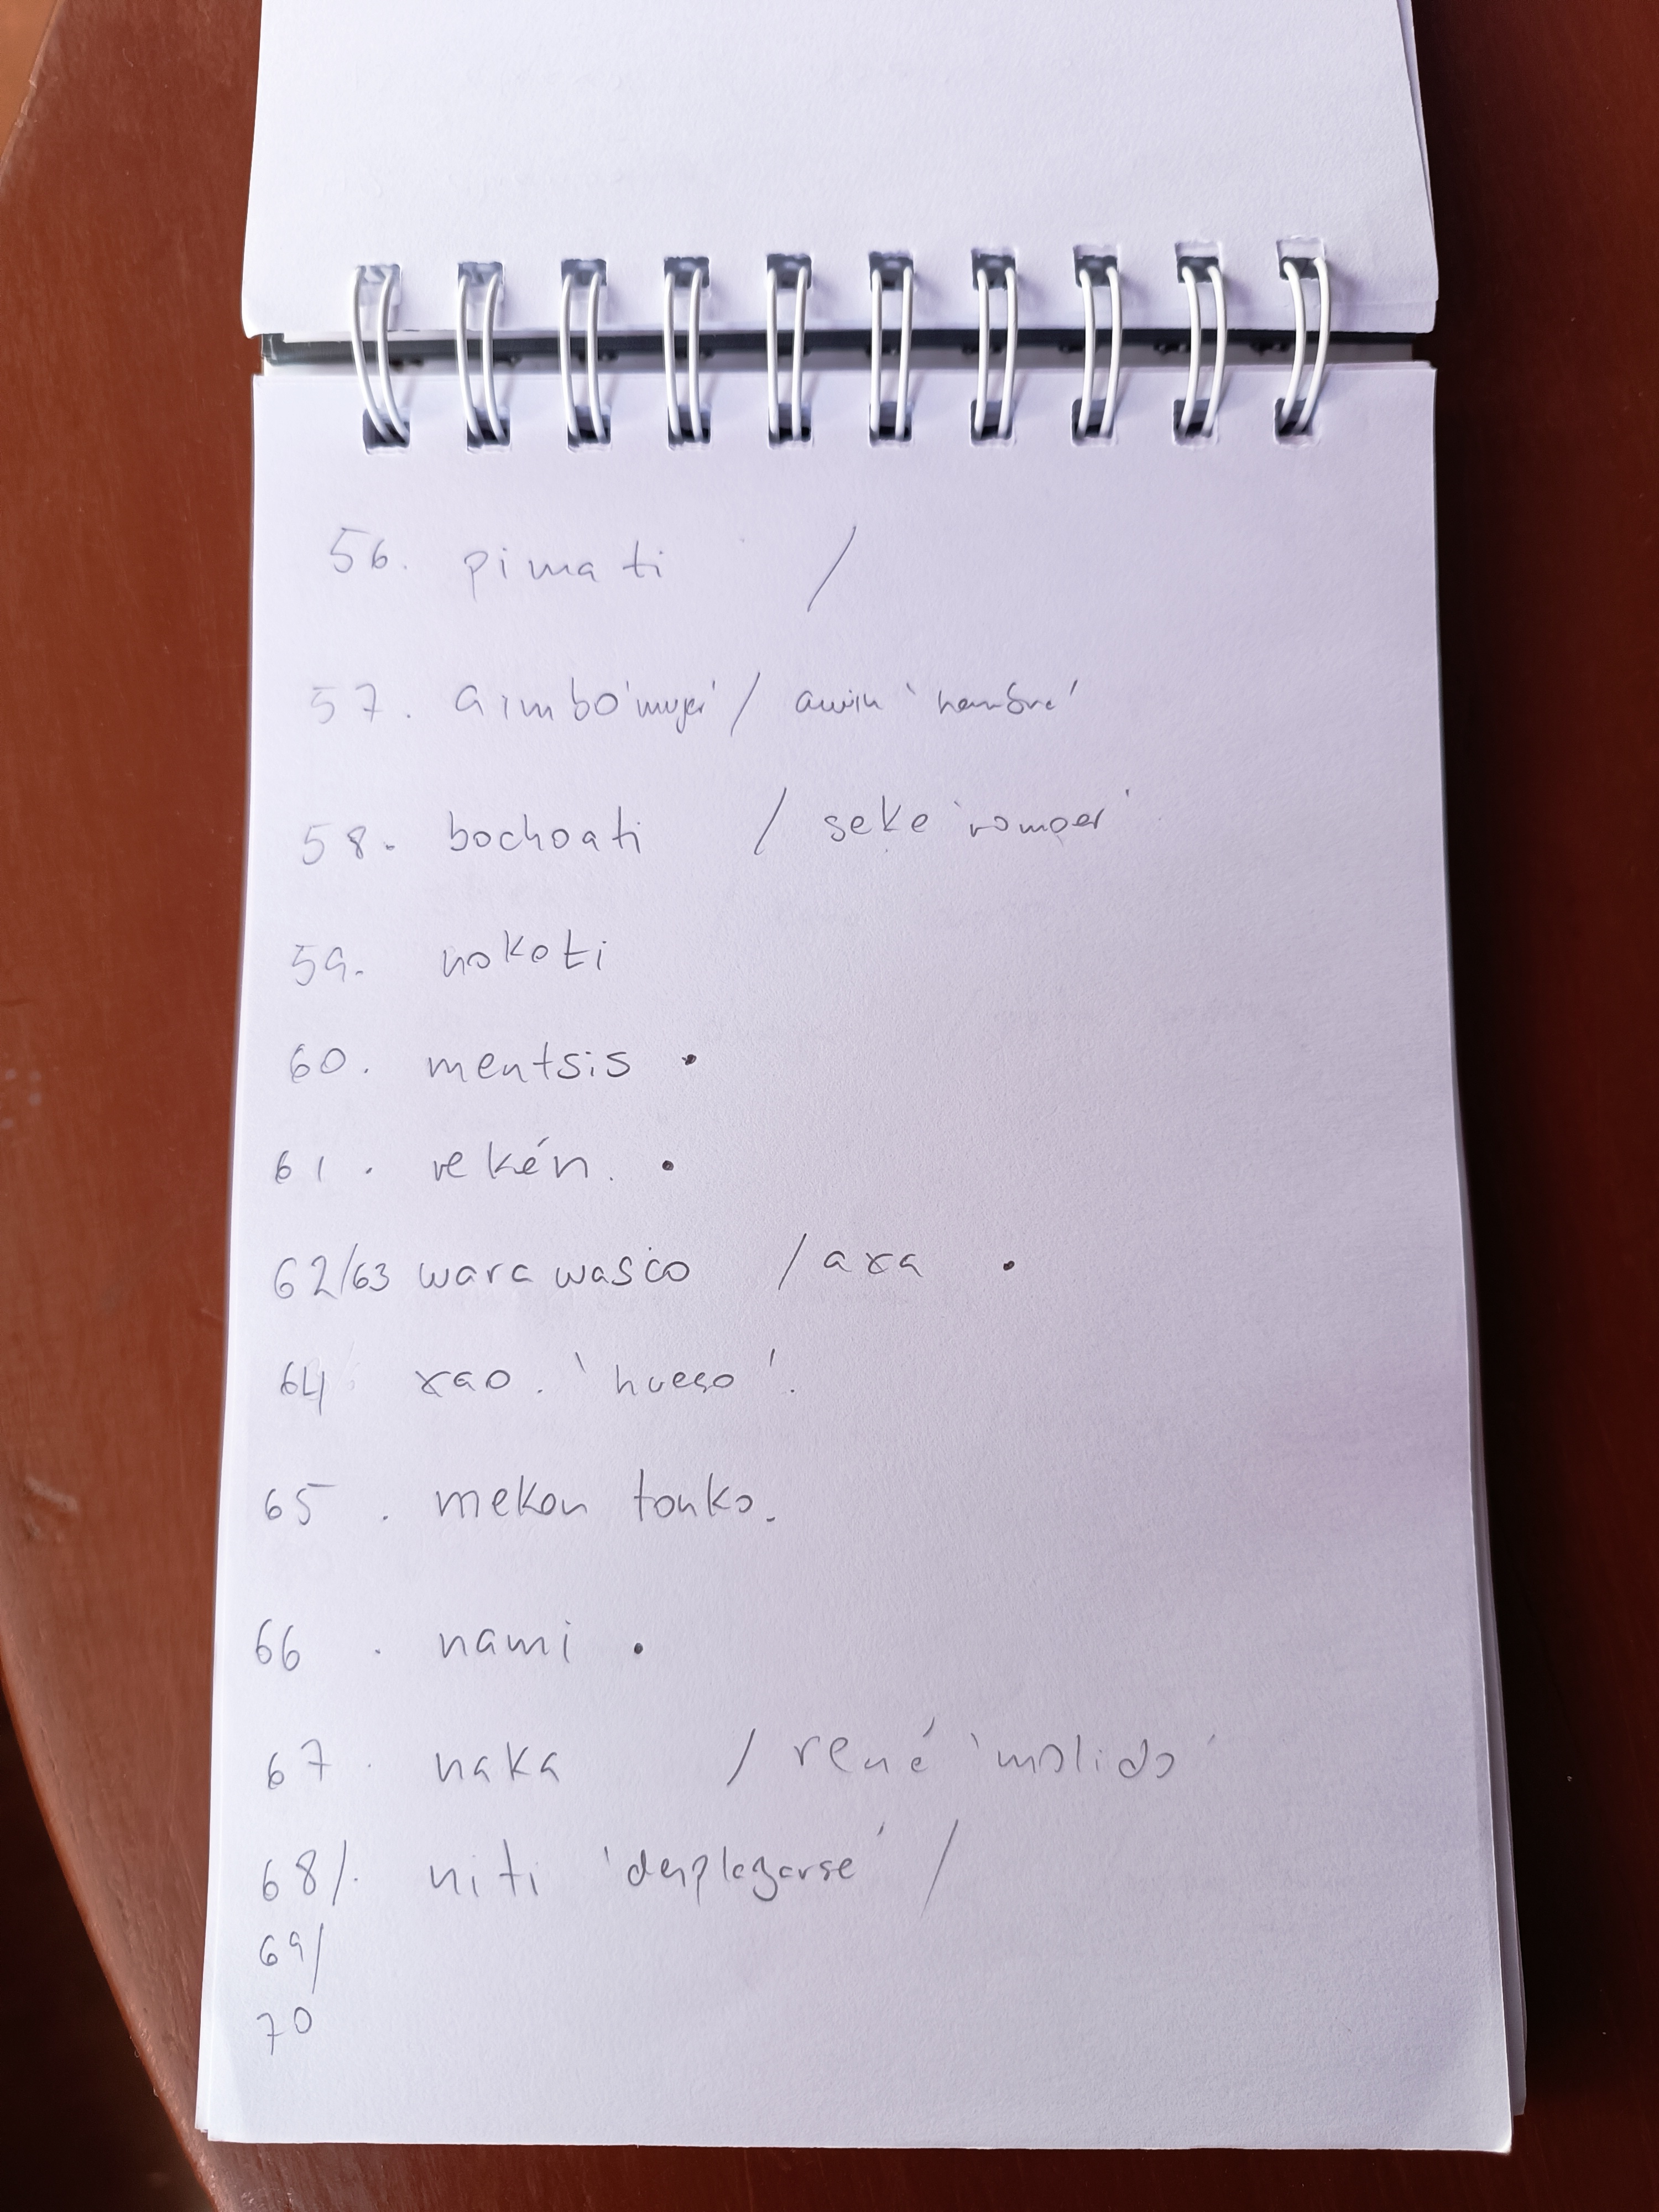 56. pimati /
57. aimbo 'mujer' / awin 'hembra'
58. bochoati / seke 'romper'
59. nokoti
60. mentsis •
61. rekén. •
62/63 wara wasco / axa •
64 xao. 'hueso'.
65. mekon tonko.
66. nami •
67. naka / rené 'molido'
68/. niti 'desplazarse' /
69/
70